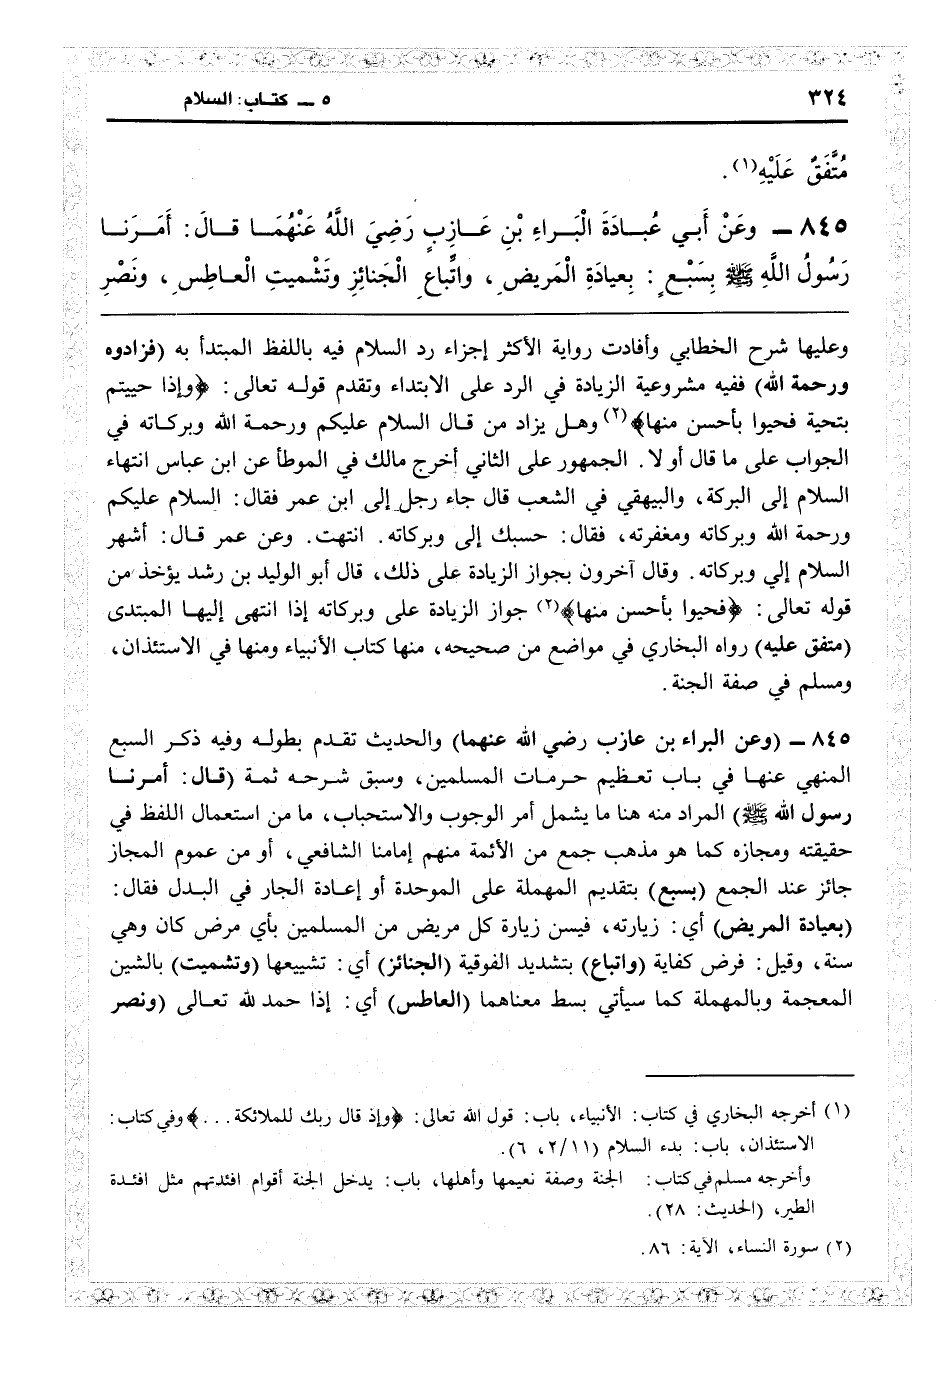 ٣٢٤
٥ ـ كتاب: السلام
مُتَّفَقٌ عَلَيْهِ(١).
٨٤٥ ـ وعَنْ أَبي عُبادَةَ الْبَراءِ بْنِ عَازِبٍ رَضِيَ اللَّهُ عَنْهُمَا قالَ: أَمَرَنا
رَسُولُ اللَّهِ ﷺ بِسَبْعٍ: بِعيادَةِ الْمَريضِ، واتِّباعِ الْجَنائِزِ وتَشْميتِ الْعاطِسِ، ونَصْرِ
وعليها شرح الخطابي وأفادت رواية الأكثر إجزاء رد السلام فيه باللفظ المبتدأ به (فزادوه
ورحمة الله) ففيه مشروعية الزيادة في الرد على الابتداء وتقدم قوله تعالى: ﴿وإذا حييتم
بتحية فحيوا بأحسن منها﴾(٢) وهل يزاد من قال السلام عليكم ورحمة الله وبركاته في
الجواب على ما قال أو لا. الجمهور على الثاني أخرج مالك في الموطأ عن ابن عباس انتهاء
السلام إلى البركة، والبيهقي في الشعب قال جاء رجل إلى ابن عمر فقال: السلام عليكم
ورحمة الله وبركاته ومغفرته، فقال: حسبك إلى وبركاته. انتهت. وعن عمر قال: أشهر
السلام إلي وبركاته. وقال آخرون بجواز الزيادة على ذلك، قال أبو الوليد بن رشد يؤخذ من
قوله تعالى: ﴿فحيوا بأحسن منها﴾(٢) جواز الزيادة على وبركاته إذا انتهى إليها المبتدى
(متفق عليه) رواه البخاري في مواضع من صحيحه، منها كتاب الأنبياء ومنها في الاستئذان،
ومسلم في صفة الجنة.
٨٤٥ ـ (وعن البراء بن عازب رضي الله عنهما) والحديث تقدم بطوله وفيه ذكر السبع
المنهي عنها في باب تعظيم حرمات المسلمين، وسبق شرحه ثمة (قال: أمرنا
رسول الله ﷺ) المراد منه هنا ما يشمل أمر الوجوب والاستحباب، ما من استعمال اللفظ في
حقيقته ومجازه كما هو مذهب جمع من الأئمة منهم إمامنا الشافعي، أو من عموم المجاز
جائز عند الجمع (بسبع) بتقديم المهملة على الموحدة أو إعادة الجار في البدل فقال:
(بعيادة المريض) أي: زيارته، فيسن زيارة كل مريض من المسلمين بأي مرض كان وهي
سنة، وقيل: فرض كفاية (واتباع) بتشديد الفوقية (الجنائز) أي: تشييعها (وتشميت) بالشين
المعجمة وبالمهملة كما سيأتي بسط معناهما (العاطس) أي: إذا حمد لله تعالى (ونصر
(١) أخرجه البخاري في كتاب: الأنبياء، باب: قول الله تعالى: ﴿وإذ قال ربك للملائكة...﴾ وفي كتاب:
الاستئذان، باب: بدء السلام (٢/١١، ٦).
وأخرجه مسلم في كتاب: الجنة وصفة نعيمها وأهلها، باب: يدخل الجنة أقوام افئدتهم مثل افئدة
الطير، (الحديث: ٢٨).
(٢) سورة النساء، الآية: ٨٦.